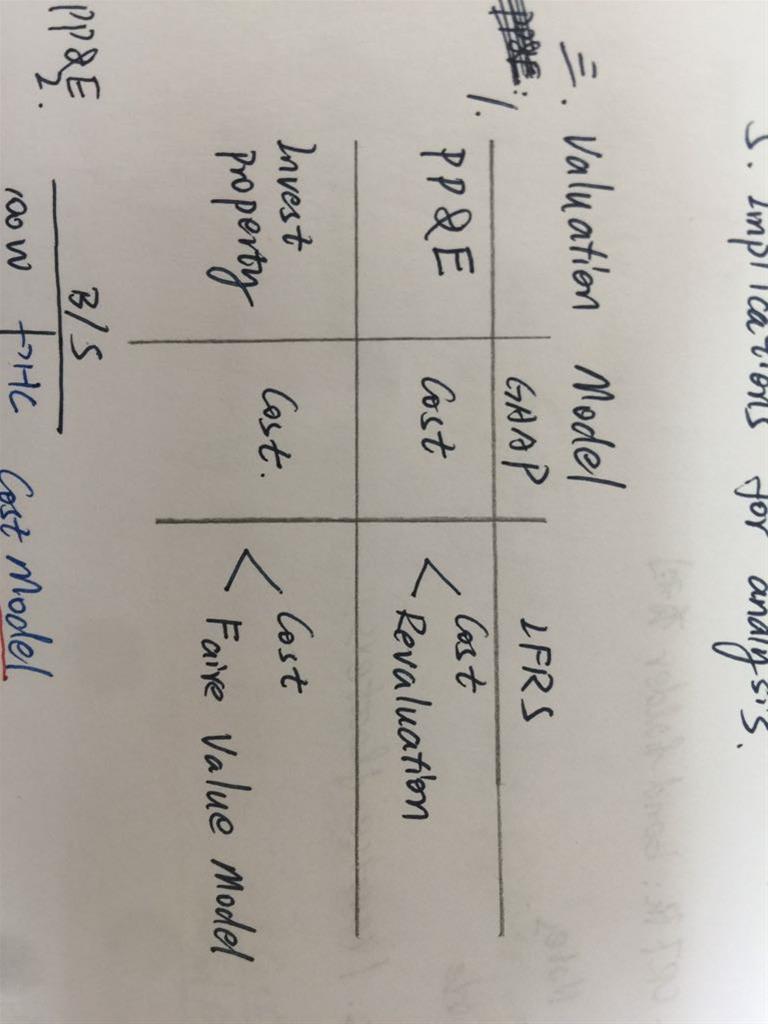 3. Implications for analysis.
三. Valuation Model
1.
GAAP IFRS
PP&E Cost < Cost
Revaluation
Invest Cost. < Cost
property Faire Value Model
PP&E
2.
B/S
100W HC Cost Model